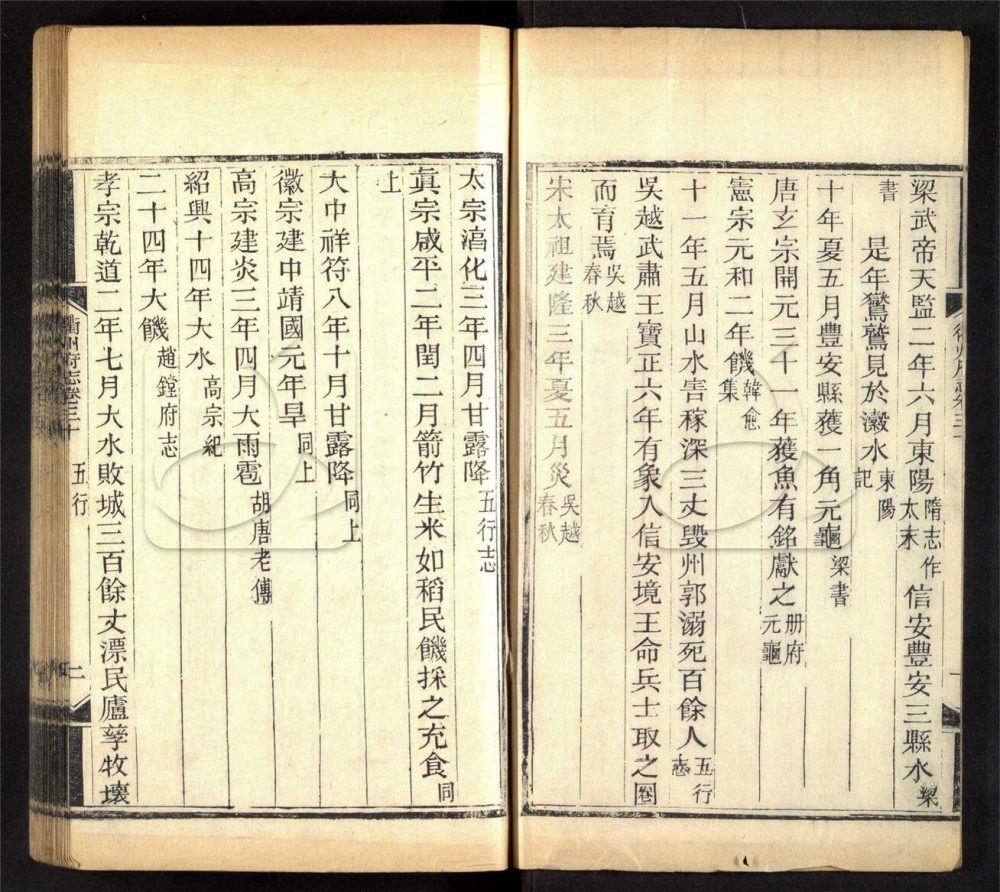 梁武帝天監二年六月東陽隋志作太末信安豐安三縣水梁
書
是年鸑鷟見於瀫水東陽記
十年夏五月豐安縣獲一角元龜梁書
唐玄宗開元三十一年獲魚有銘獻之册府元龜
憲宗元和二年饑韓愈集
十一年五月山水害稼深三丈毀州郭溺死百餘人五行志
吳越武肅王寶正六年有象入信安境王命兵士取之圈
而育焉吳越春秋
宋太祖建隆三年夏五月災吳越春秋
太宗淳化三年四月甘露降五行志
真宗咸平二年閏二月箭竹生米如稻民饑採之充食同
上
大中祥符八年十月甘露降同上
徽宗建中靖國元年旱同上
高宗建炎三年四月大雨雹胡唐老傳
紹興十四年大水高宗紀
二十四年大饑趙鏜府志
孝宗乾道二年七月大水敗城三百餘丈漂民廬孳牧壞
衢州府志卷三十 五行 二